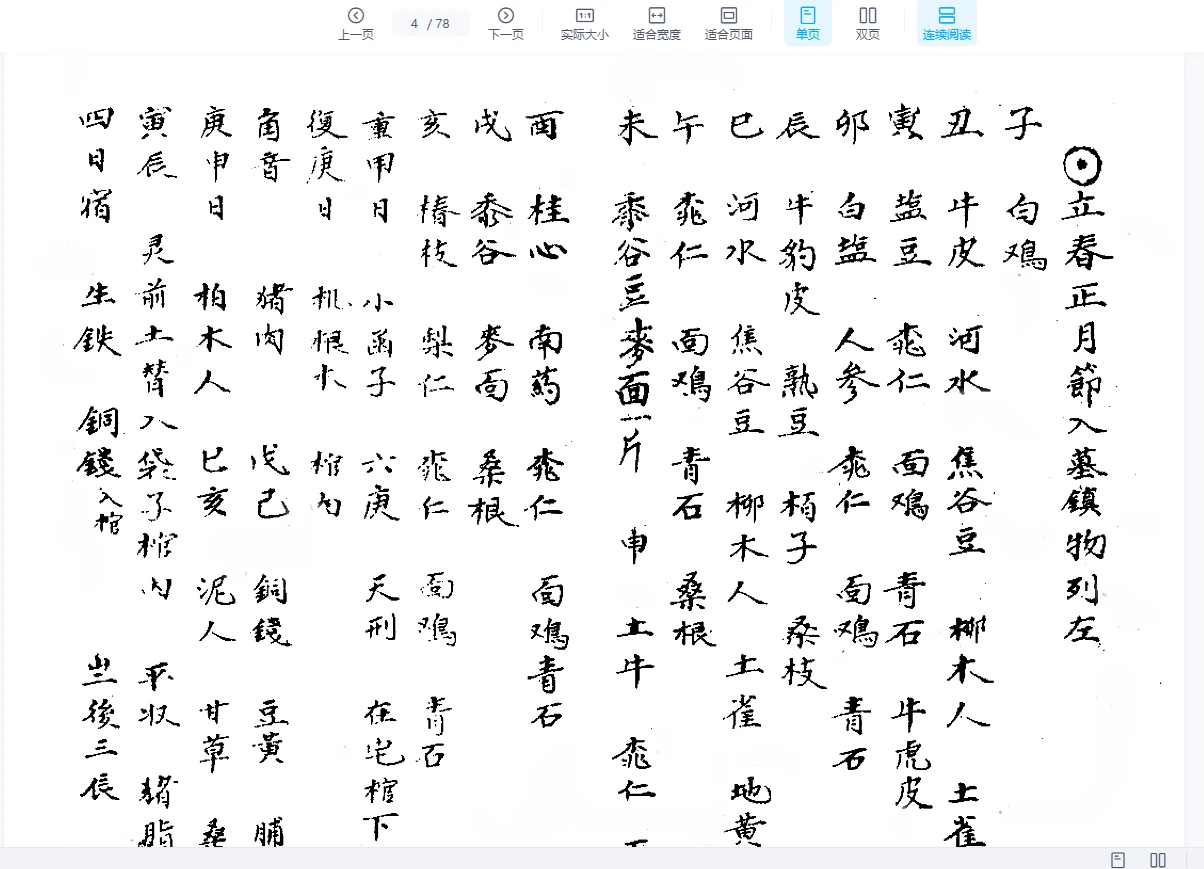 上一页
4 / 78
下一页
实际大小
适合宽度
适合页面
单页
双页
连续阅读
立春正月節入墓鎮物列左
子 白鸡
丑 牛皮 河水 焦谷豆 柳木人 土雀
寅 盐豆 桃仁 面鸡 青石 牛虎皮
卯 白盐 人参 桃仁 面鸡 青石
辰 牛豹皮 熟豆 栢子 桑枝
巳 河水 焦谷豆 柳木人 土雀 地黄
午 桃仁 面鸡 青石 桑根
未 黍谷豆麥面一片 申 土牛 桃仁
酉 桂心 南药 桃仁 面鸡青石
戌 黍谷 麥面 桑根
亥 椿枝 梨仁 桃仁 面鸡 青石
重甲日 小函子 六庚 天刑 在宅棺下
復庚日 桃根木 棺內
角音 猪肉 戊己 銅錢 豆黃 脯
庚申日 柏木人 巳亥 泥人 甘草 桑
寅辰 灵前土 入袋子棺內 平收 猪脂
四日猪 生鉄 銅錢入棺 後三辰